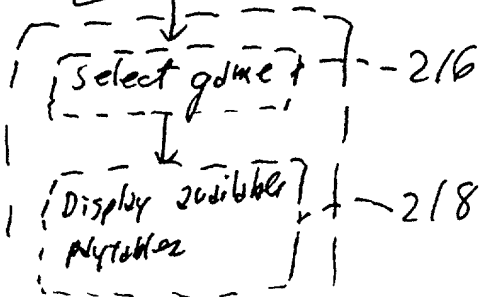 Select game
216
Display available
218
paytables